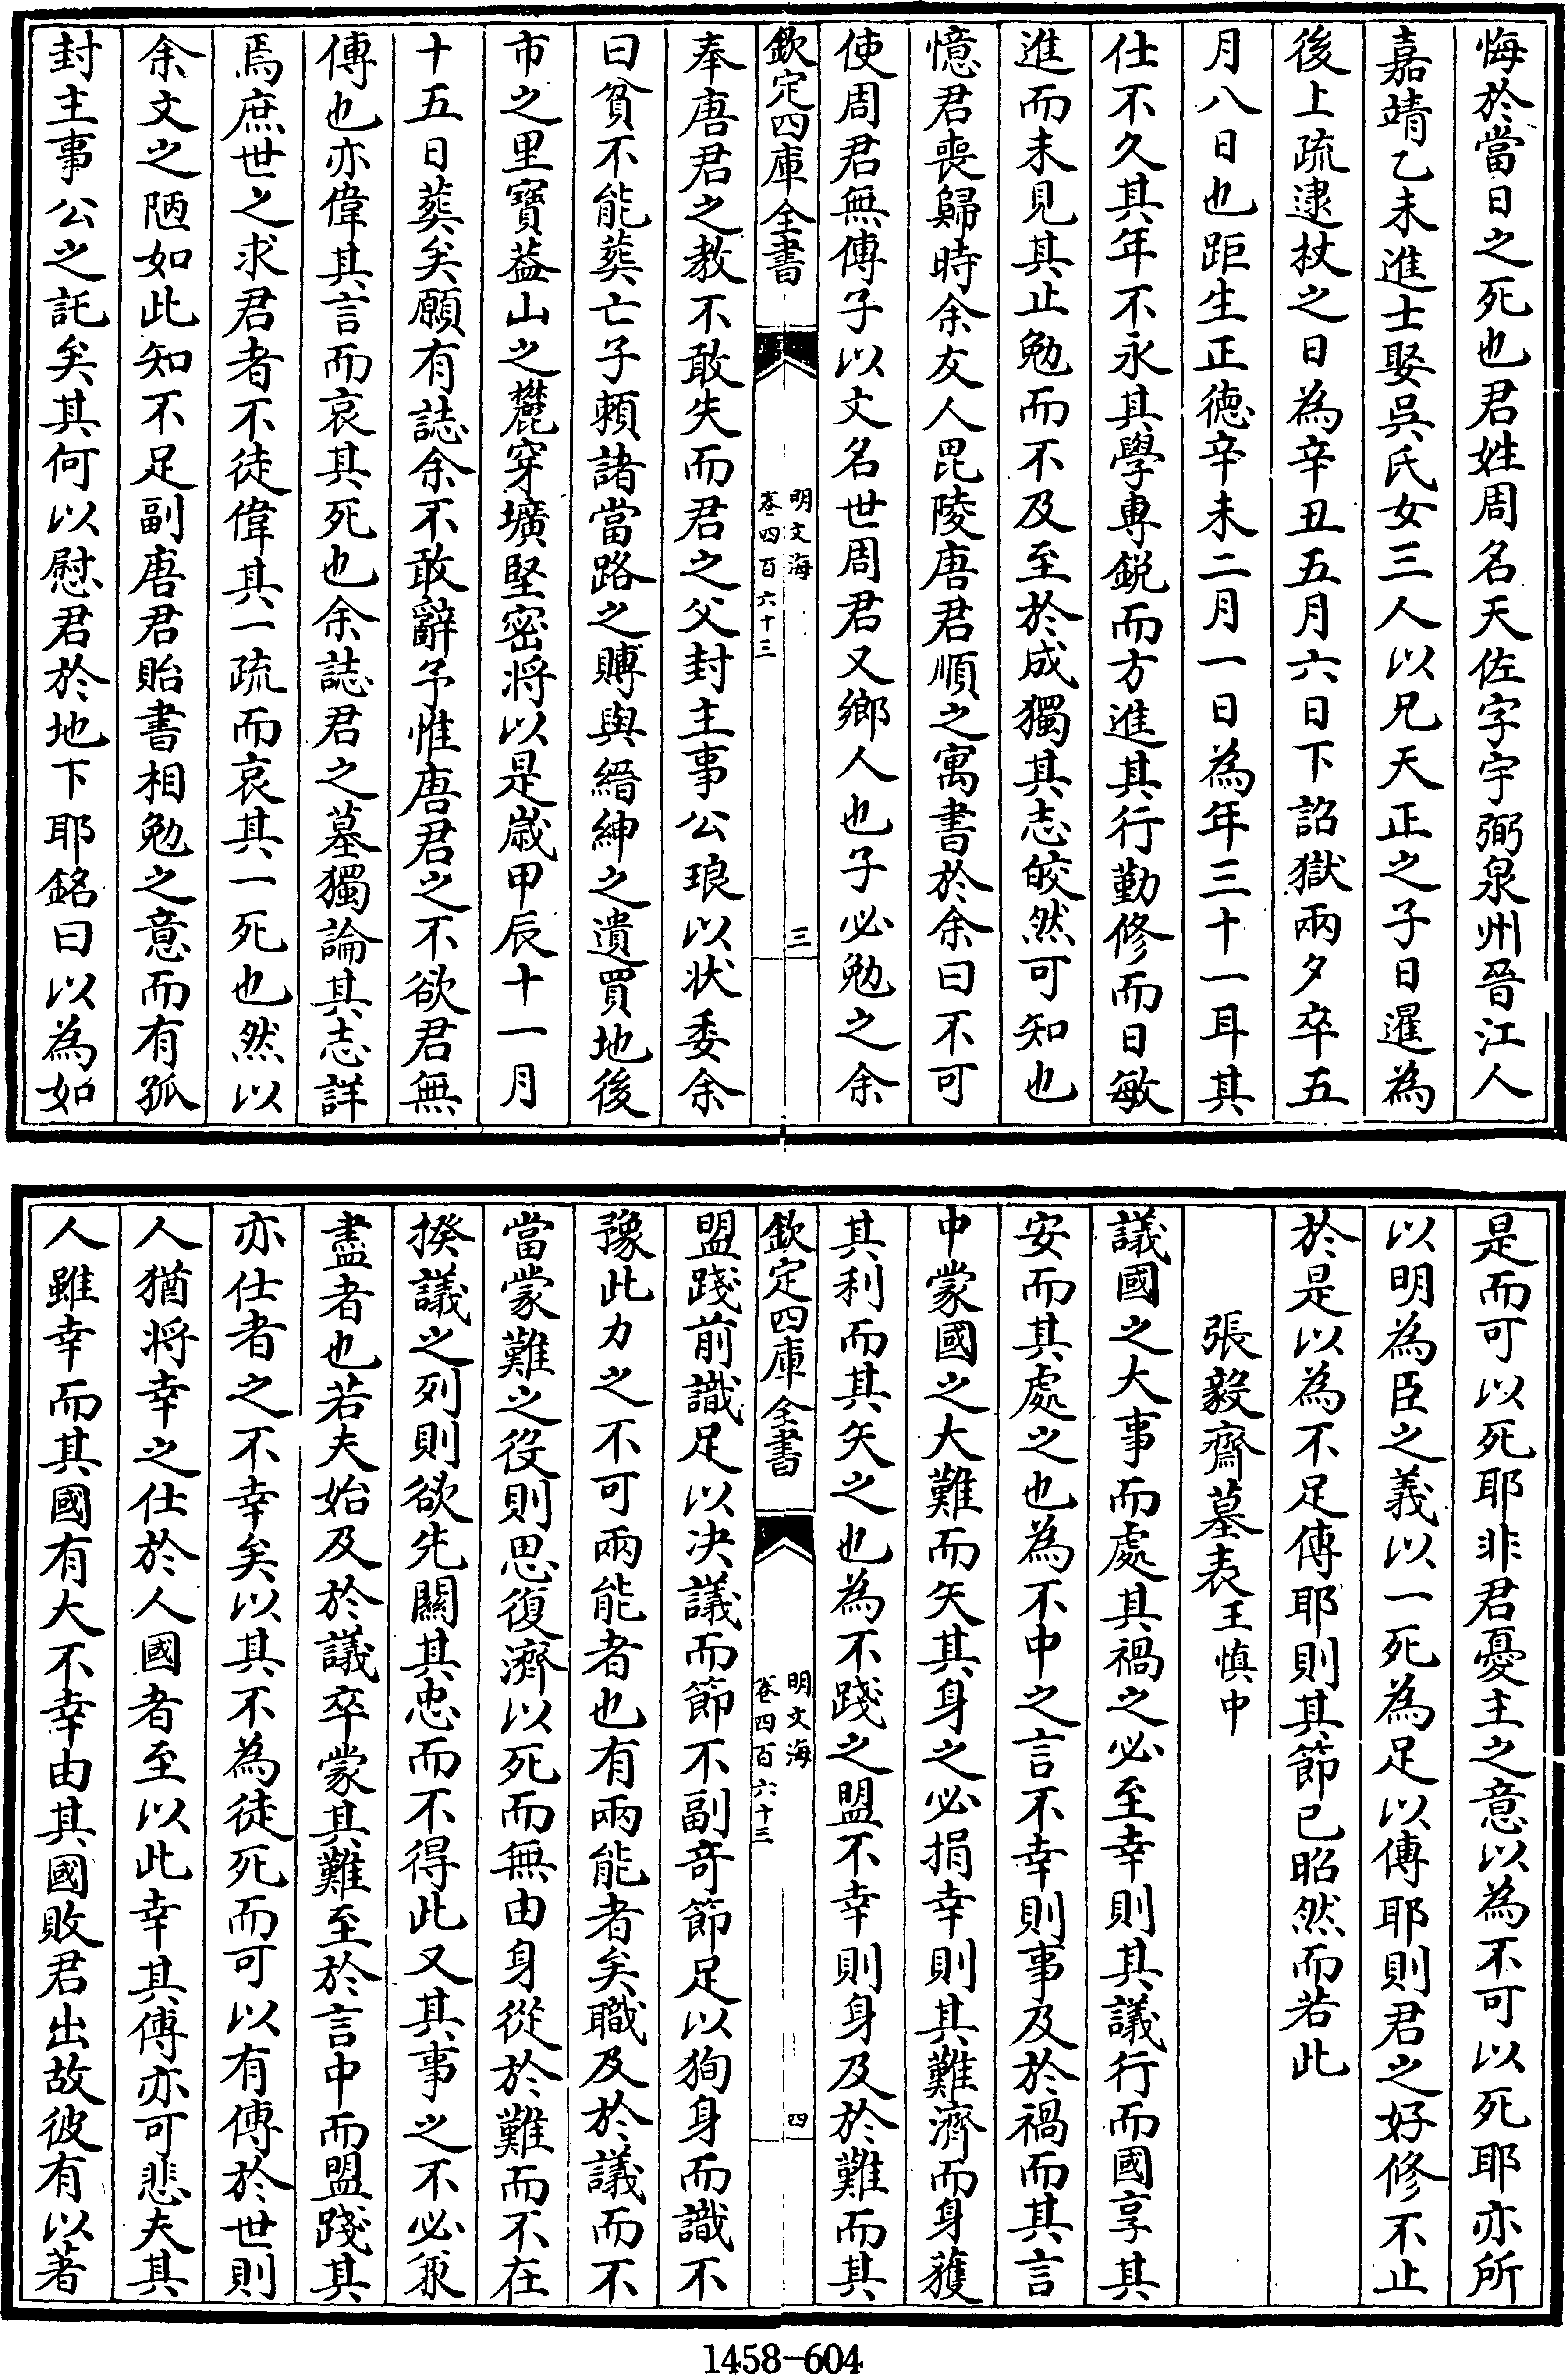 悔於當日之死也君姓周名天佐字宇弼泉州晉江人
嘉靖乙未進士娶吳氏女三人以兄天正之子日暹為
後上疏逮杖之日為辛丑五月六日下詔獄兩夕卒五
月八日也距生正德辛未二月一日為年三十一耳其
仕不久其年不永其學專銳而方進其行勤修而日敏
進而未見其止勉而不及至於成獨其志皎然可知也
憶君喪歸時余友人毘陵唐君順之寓書於余曰不可
使周君無傳子以文名世周君又鄉人也子必勉之余
欽定四庫全書
明文海
卷四百六十三
三
奉唐君之教不敢失而君之父封主事公琅以狀委余
曰貧不能葬亡子賴諸當路之賻與縉紳之遺買地後
市之里寶葢山之麓穿壙堅密將以是歲甲辰十一月
十五日葬矣願有誌余不敢辭予惟唐君之不欲君無
傳也亦偉其言而哀其死也余誌君之墓獨論其志詳
焉庶世之求君者不徒偉其一疏而哀其一死也然以
余文之陋如此知不足副唐君貽書相勉之意而有孤
封主事公之託矣其何以慰君於地下耶銘曰以為如
是而可以死耶非君憂主之意以為不可以死耶亦所
以明為臣之義以一死為足以傳耶則君之好修不止
於是以為不足傳耶則其節已昭然而若此
張毅齋墓表王慎中
議國之大事而處其禍之必至幸則其議行而國享其
安而其處之也為不中之言不幸則事及於禍而其言
中蒙國之大難而矢其身之必捐幸則其難濟而身獲
其利而其矢之也為不踐之盟不幸則身及於難而其
欽定四庫全書
明文海
卷四百六十三
四
盟踐前識足以决議而節不副奇節足以狥身而識不
豫此力之不可兩能者也有兩能者矣職及於議而不
當蒙難之役則思復濟以死而無由身從於難而不在
揆議之列則欲先關其忠而不得此又其事之不必兼
盡者也若夫始及於議卒蒙其難至於言中而盟踐其
亦仕者之不幸矣以其不為徒死而可以有傳於世則
人猶將幸之仕於人國者至以此幸其傳亦可悲夫其
人雖幸而其國有大不幸由其國敗君出故彼有以著
1458-604